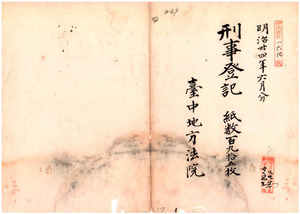 明治卅四年六月分
刑事登記
紙数百九拾五枚
臺中地方法院